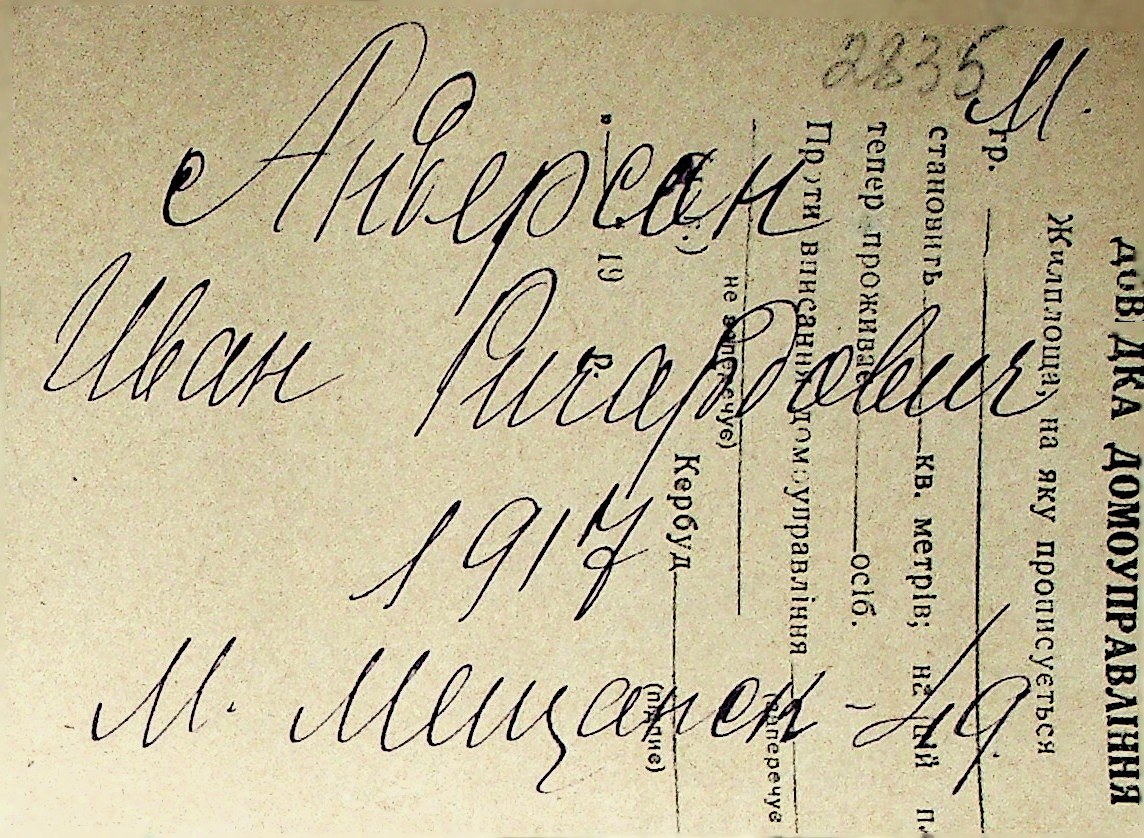 2835 М.
Андерсан
Иван Ричардович
1917
М. Мещанск - 49
ДОВІДКА ДОМОУПРАВЛІННЯ
Жилплоща, на яку прописується
гр.
становить кв. метрів; на цій
тепер проживає осіб.
Проти вписання домоуправління
заперечує
не заперечує)
19 р.
Кербуд
(підпис)